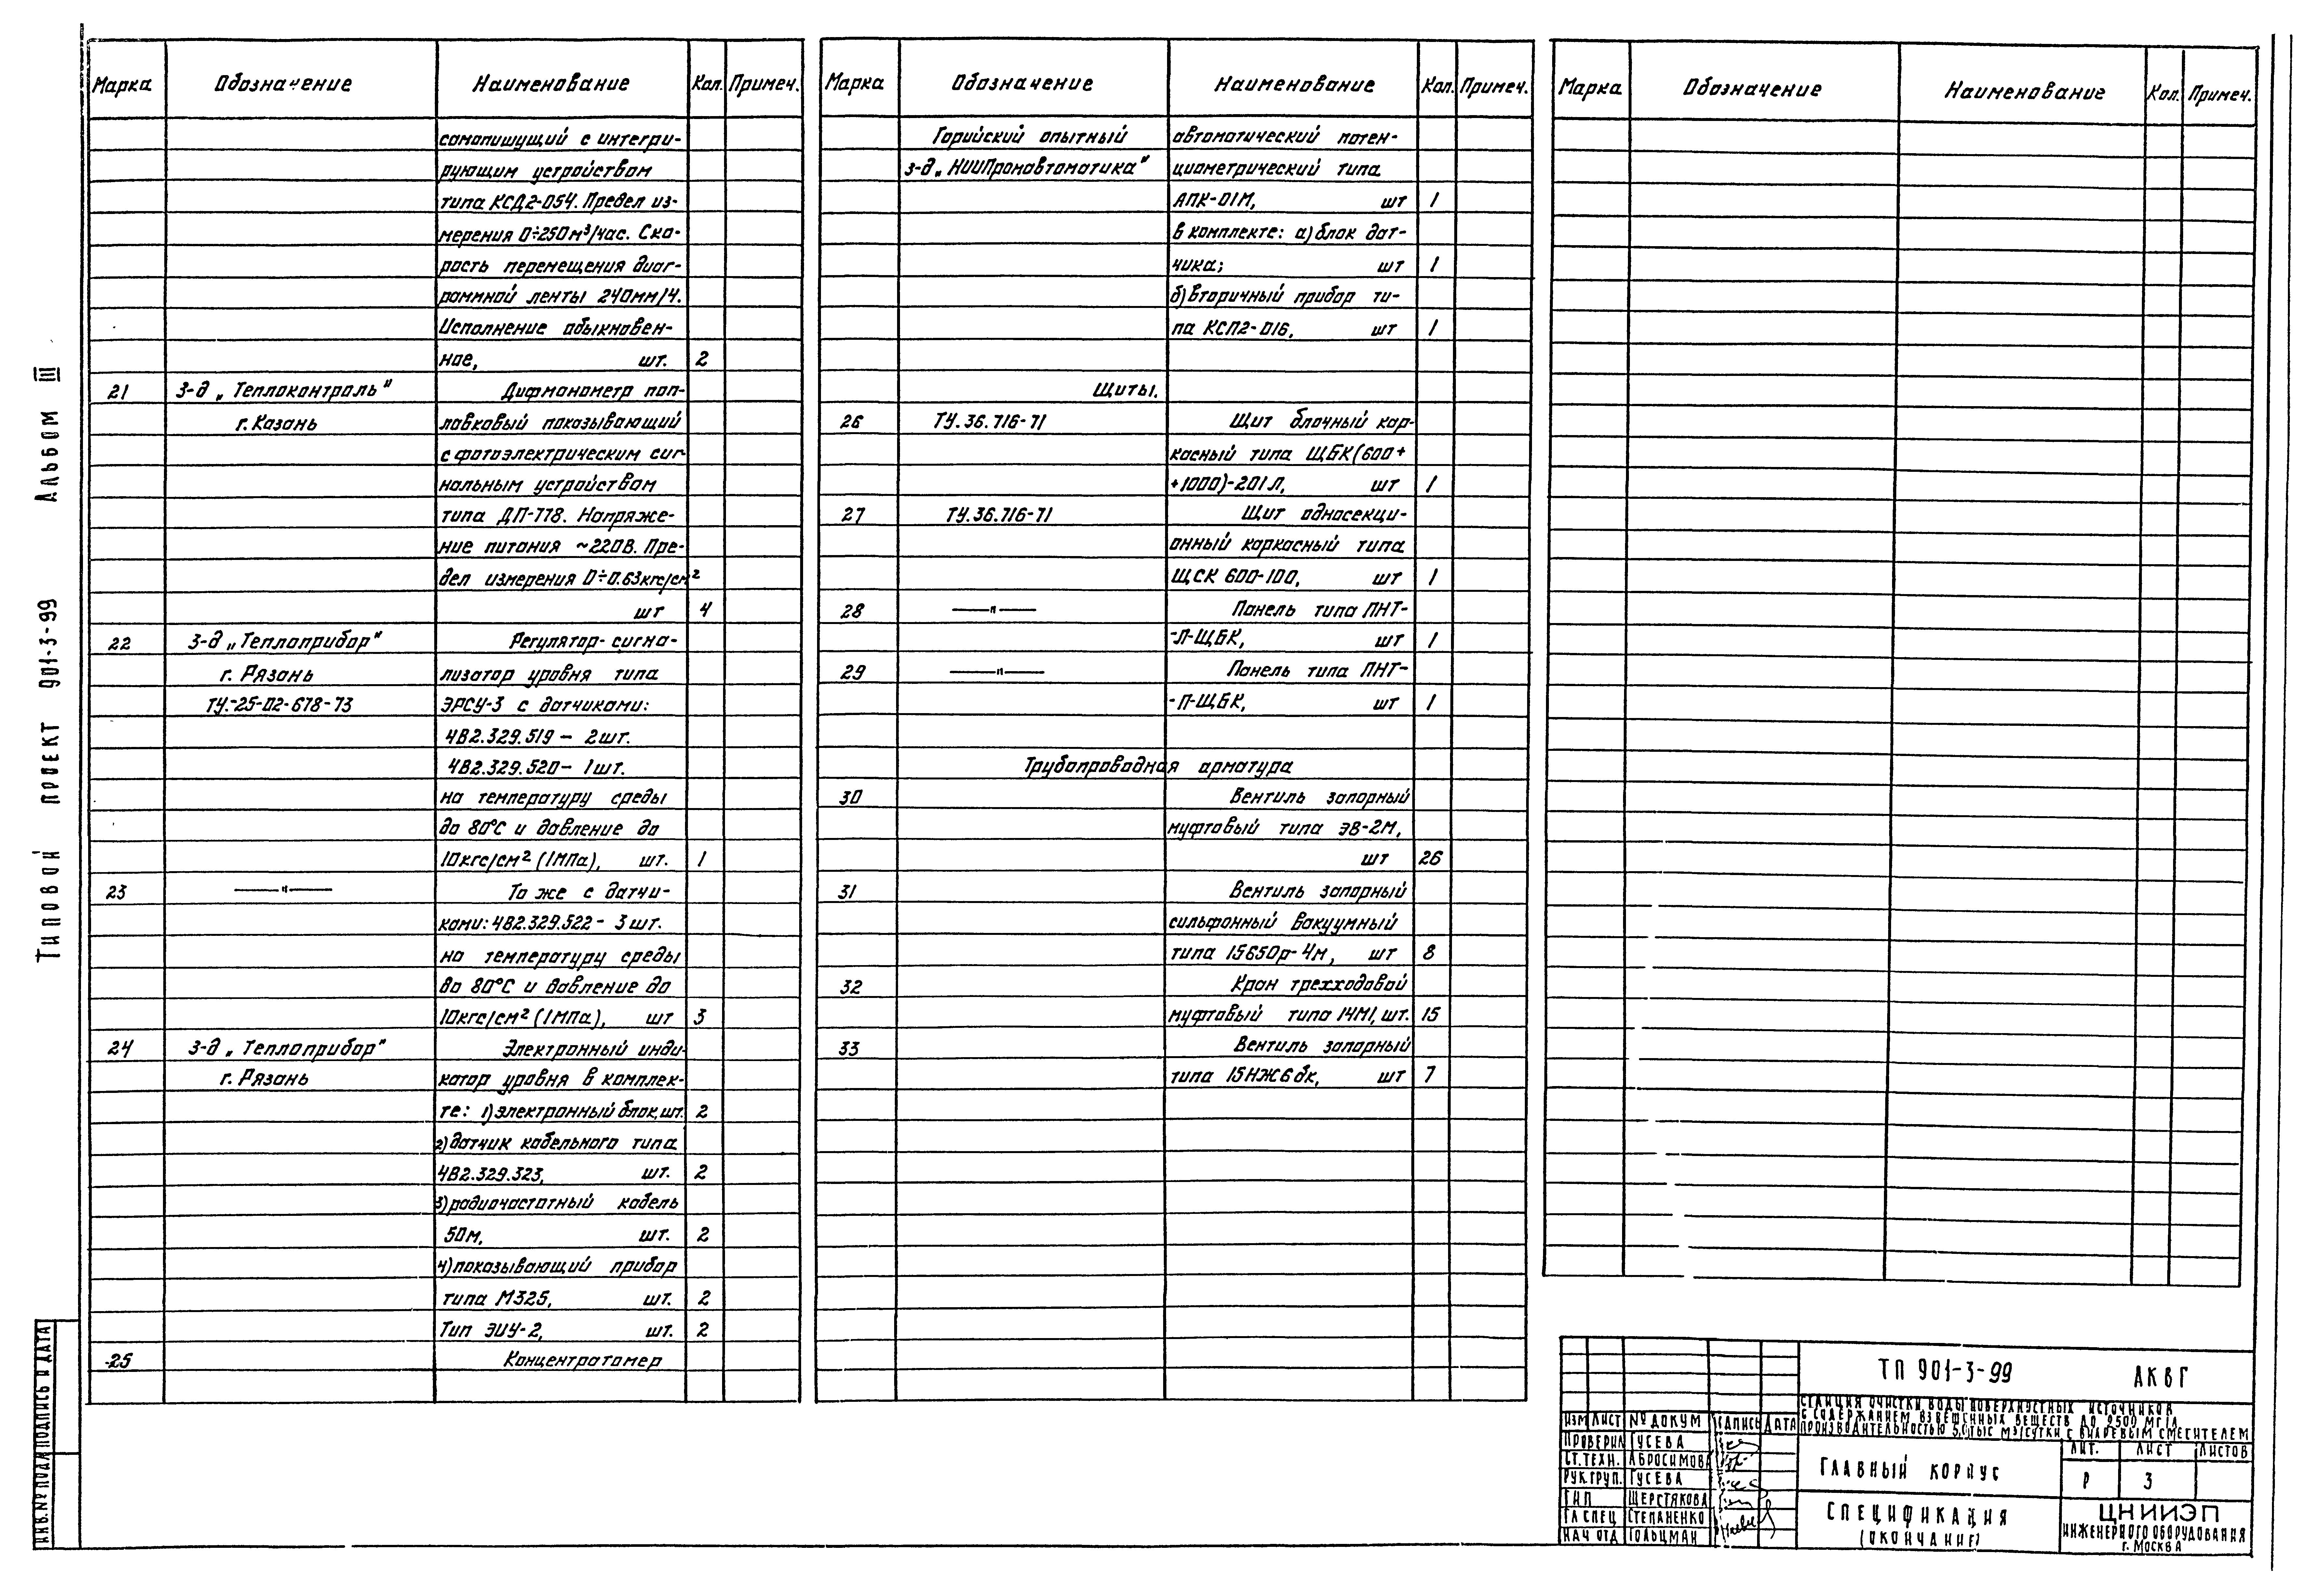 Альбом III
Типовой проект 901-3-99
Инв.№ подл Подпись и дата
Марка Обозначение Наименование Кол. Примеч.
самопишущий с интегри-
рующим устройством
типа КСД2-054. Предел из-
мерения 0÷250м³/час. Ско-
рость перемещения диаг-
раммной ленты 240мм/ч.
Исполнение обыкновен-
ное, шт. 2
21 З-д „Теплоконтроль" Дифманометр поп-
г. Казань лавковый показывающий
с фотоэлектрическим сиг-
нальным устройством
типа ДП-778. Напряже-
ние питания ~220В. Пре-
дел измерения 0÷0.63кгс/см²
шт 4
22 З-д „Теплоприбор" Регулятор-сигна-
г. Рязань лизатор уровня типа
ТУ-25-02-678-73 ЭРСУ-3 с датчиками:
4В2.329.519 – 2шт.
4В2.329.520 – 1шт.
на температуру среды
до 80°С и давление до
10кгс/см² (1МПа), шт. 1
23 —"— То же с датчи-
ками: 4В2.329.522 – 3шт.
на температуру среды
до 80°С и давление до
10кгс/см² (1МПа), шт 3
24 З-д „Теплоприбор" Электронный инди-
г. Рязань катор уровня в комплек-
те: 1)электронный блок,шт. 2
2)датчик кабельного типа
4В2.329.323, шт. 2
3)радиочастотный кабель
50м, шт. 2
4)показывающий прибор
типа М325, шт. 2
Тип ЭИУ-2, шт. 2
25 Концентратомер
Марка Обозначение Наименование Кол. Примеч.
Горийский опытный автоматический потен-
з-д „НИИПромавтоматика" циометрический типа
АПК-01М, шт 1
в комплекте: а)блок дат-
чика; шт 1
б)вторичный прибор ти-
па КСП2-016, шт 1
Щиты.
26 ТУ.36.716-71 Щит блочный кар-
касный типа ЩБК(600+
+1000)-201Л, шт 1
27 ТУ.36.716-71 Щит односекци-
онный каркасный типа
ЩСК 600-100, шт 1
28 —"— Панель типа ПНТ-
-Л-ЩБК, шт 1
29 —"— Панель типа ПНТ-
-П-ЩБК, шт 1
Трубопроводная арматура
30 Вентиль запорный
муфтовый типа ЭВ-2М,
шт 26
31 Вентиль запорный
сильфонный вакуумный
типа 15Б50р-4м, шт 8
32 Кран трехходовой
муфтовый типа 14М1, шт. 15
33 Вентиль запорный
типа 15НЖ6бк, шт 7
Марка Обозначение Наименование Кол. Примеч.
ТП 901-3-99 АКВГ
Станция очистки воды поверхностных источников
с содержанием взвешенных веществ до 2500 мг/л
производительностью 5,0 тыс м³/сутки с вихревым смесителем
Изм Лист № докум Подпись Дата
Проверил Гусева
Ст.техн. Абросимова
Рук.груп. Гусева
ГИП Шерстякова
Гл спец Степаненко
Нач отд Гольцман
Главный корпус
Лит. Лист Листов
Р 3
Спецификация
(окончание)
ЦНИИЭП
инженерного оборудования
г. Москва